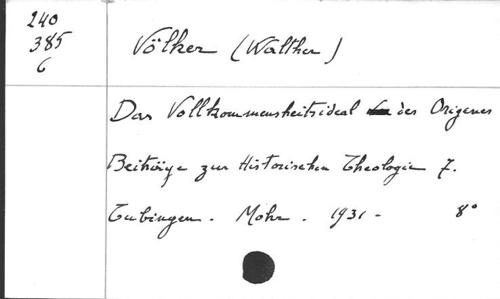 240
385
6
Völker (Walther)
Das Vollkommensheitsideal des Origenes
Beiträge zur Historischen Theologie 7.
Tubingen. Mohr. 1931 - 8°